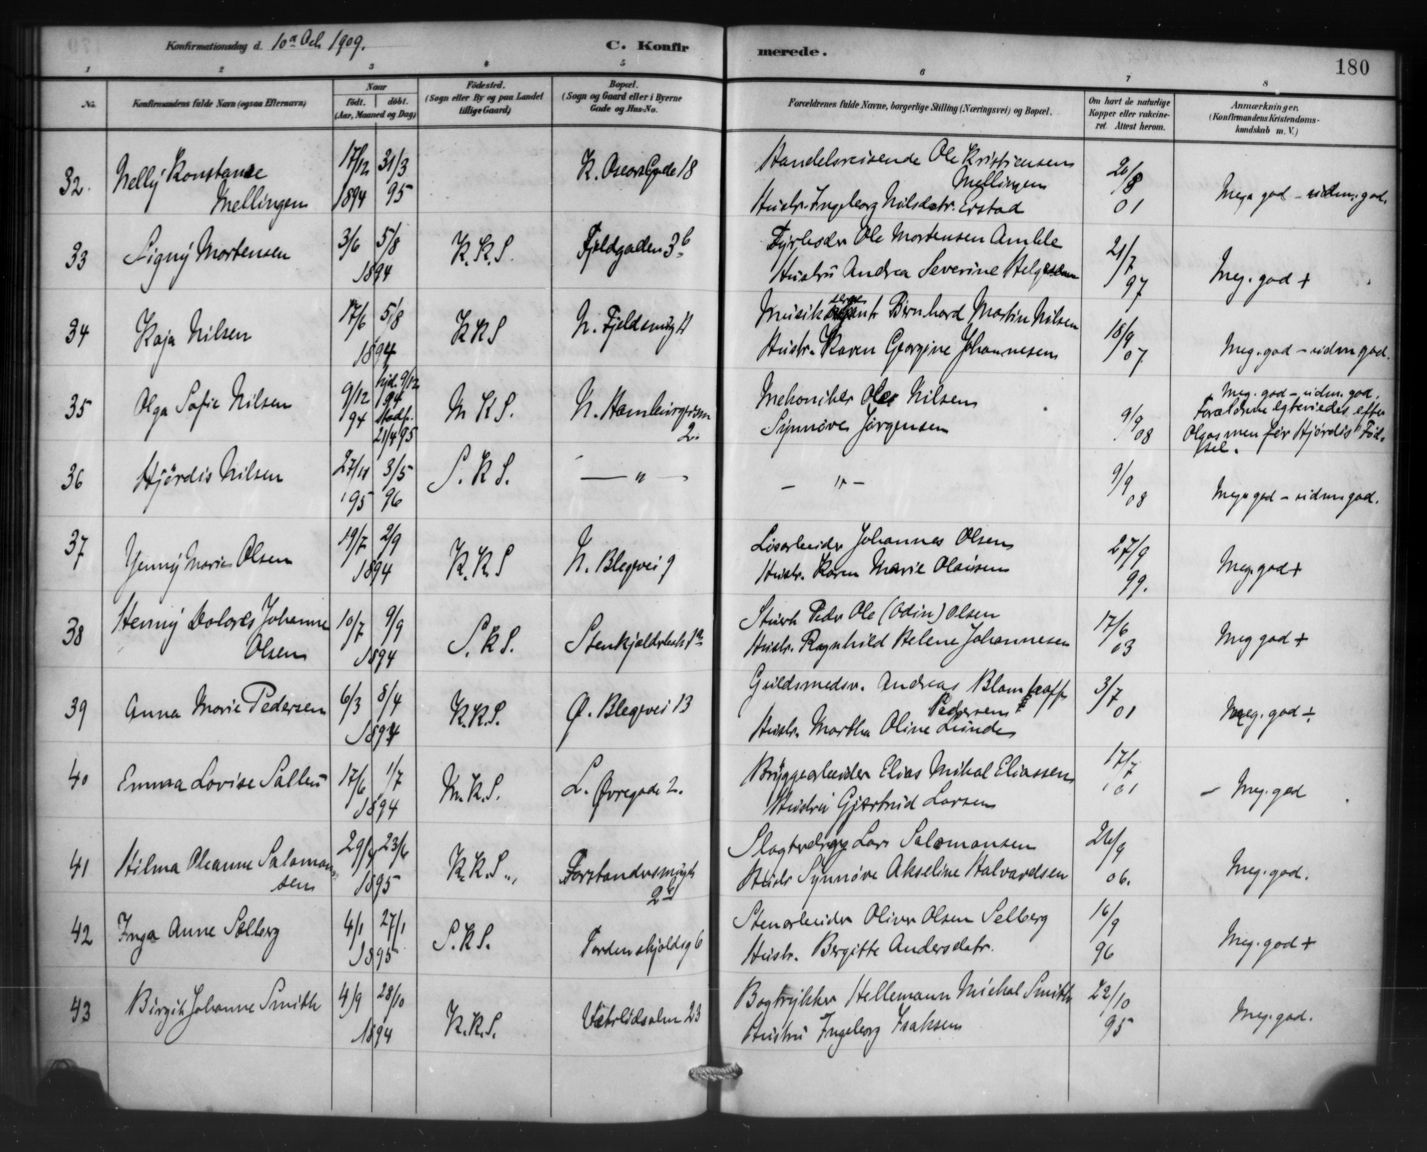 Konfirmationsdag d. 10de Oct. 1909.
C. Konfirmerede.
180
1 2 3 4 5 6 7 8
No.
Konfirmandens fulde Navn (ogsaa Efternavn)
Naar
født. døbt.
(Aar, Maaned og Dag)
Fødested.
(Sogn eller By og paa Landet tillige Gaard)
Bopæl.
(Sogn og Gaard eller i Byerne Gade og Hus-No.
Forældrenes fulde Navne, borgerlige Stilling (Næringsvei) og Bopæl.
Om havt de naturlige Kopper eller vaccineret. Attest herom.
Anmærkninger.
(Konfirmandens Kristendomskundskab m. V.)
32. Nelly Konstance Mellingen
17/12 1894 31/3 95
K. Oscarsgade 18
Handelsreisende Ole Kristiansen Mellingen
Hustr. Ingeborg Nilsdatr. Erstad
20/8 01
Meg. god - udm. god.
33 Signy Mortensen
3/6 5/8 1894
K.K.S.
Fjeldgaden 3b
Fyrbøder Ole Mortensen Amble
Hustru Andrea Severine Helgesen
21/7 97
Meg. god +
34 Kaja Nilsen
17/6 5/8 1894
K K S
N. Fjeldsmug 4
Musiksergent Bernhard Martin Nilsen
Hustr. Karen Georgine Johannesen
18/9 07
Meg. god - udm god.
35 Olga Sofie Nilsen
9/12 94 hjd. 9/12 194 stadf. 21/4 95
M K S.
N. Hamburgersm 2.
Mekaniker Ole Nilsen
Synnøve Jørgensen
9/9 08
Meg. god - udm. god.
Forældrene egteviedes efter
Olgas men før Hjørdis' Fødsel.
36 Hjørdis Nilsen
27/11 '95 3/5 96
S. K S.
— " —
— " —
9/9 08
Meg. god - udm. god.
37 Jenny Marie Olsen
19/7 2/9 1894
K. K. S
N. Blegevei 9
Løsarbeider Johannes Olsen
Hustr. Karen Marie Olausen
27/9 99.
Meg. god +
38 Henny Dolores Johanne Olsen
10/7 9/9 1894
S. K S.
Peder Ole (Odin) Olsen
Hustr. Ragnhild Helene Johannesen
17/6 03
Meg god +
39 Anna Marie Pedersen
6/3 8/4 1894
K.K.S.
Ø. Blegevei 13
Guldsmedsv. Andreas Pedersen
Hustr. Martha Oline Lunde
3/7 01
Meg. god ÷
40 Emma Lovise
17/6 1/7 1894
M.K.S.
L. Øvregade 2.
Bryggearbeider Elias Mikal Eliassen
Hustru Gjertrud Larsen
17/7 '01
- Meg. god
41 Hilma Oleanne Salomonsen
23/6 1895
K.K.S.
Forstandersmug
Lars Salomonsen
Hustr Synnøve Akseline Halvardsen
26/9 06.
Meg. god.
42 Inga Anne Selberg
4/1 27/1 1895
S.K.S.
Tordenskjoldsg 6
Stenarbeider Oliver Olsen Selberg
Hustr. Bergitte Andersdatr.
16/9 96
Meg. god +
43 Birgit Johanne Smith
4/9 28/10 1894
K.K.S.
Vetrlidsalm 23
Bogtrykker Hellemann Michal Smith
Hustru Ingeborg Isaksen
22/10 95
Meg. god.